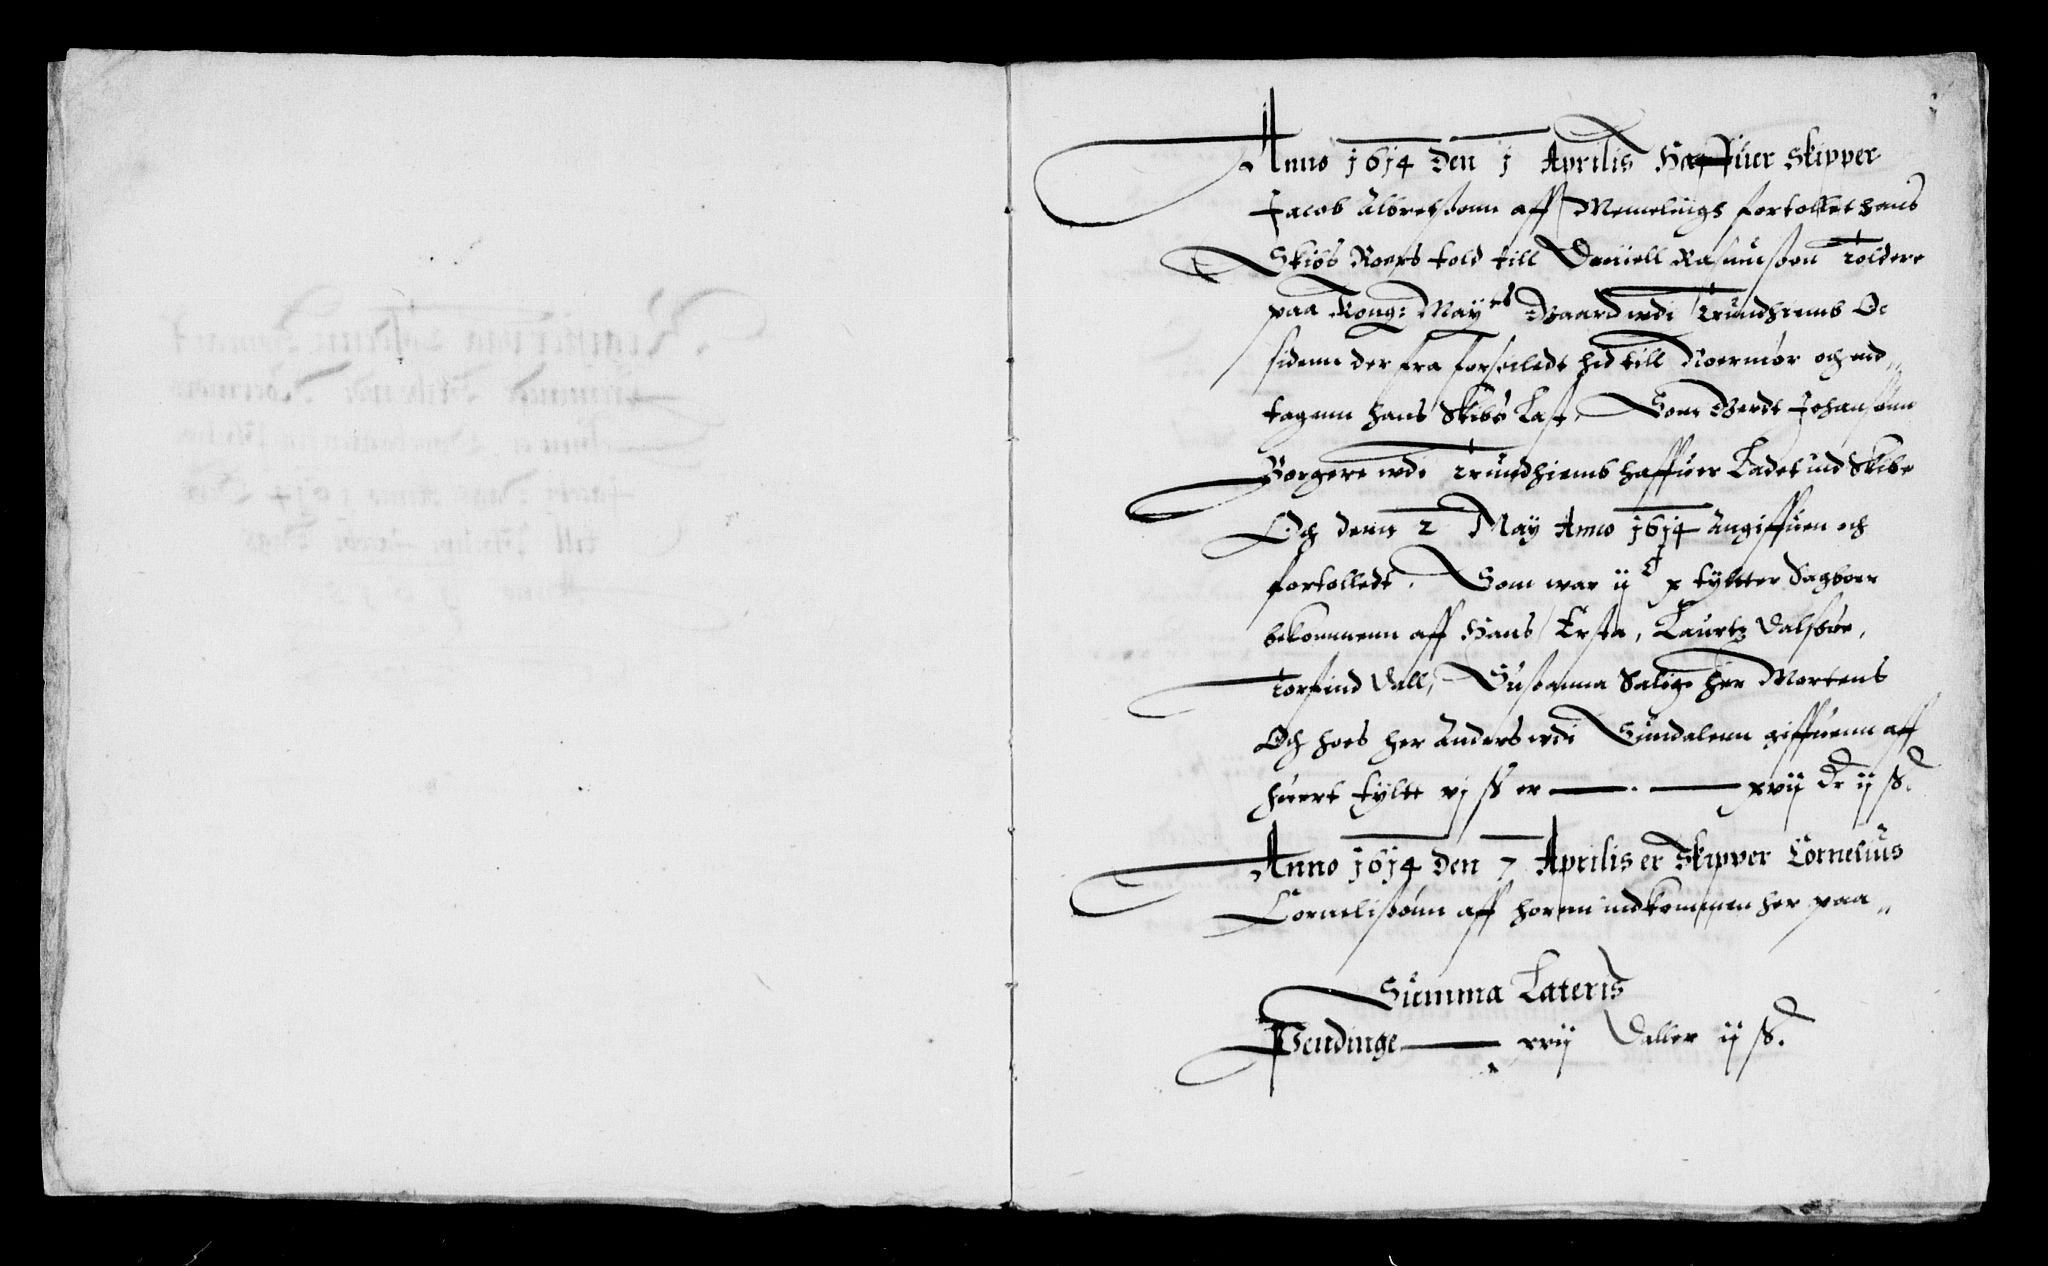 Anno 1614 den 1 Aprilis Haffuer Skipper
Jacob Albretssønn aff Memelings fortollet hans
Skibs Roers told till Daniell Rasmussøn Toldere
paa Kong: May:tts Gaard wdi Trundhiemb Oc
sidenn der fra forseiledt hid till Noermør och ind,,
tagenn hans Skibs Last, Som Gerdt Johansønn
Borgere wdi Trundhiemb haffuer Ladet ind Skibe
Och denn 2 May Anno 1614 Angiffuen och
fortolledt. Som war ij C x tylltter Sagboer
bekommenn aff Hans Ersta, Laurtz Dalsbøe,
Torfind Dall, Sussanna Salig Her Mortens
Och hoes her Anders wdi Sundalenn giffuenn aff
huert tyltt vj ß er ——— . ——— xvij dr ij ß.
Anno 1614 den 7 Aprilis er Skipper Cornelius
Cornelissønn aff Horen indkommen her paa,,
Summa Lateris
Pendinge ——— xvij Daller ij ß.